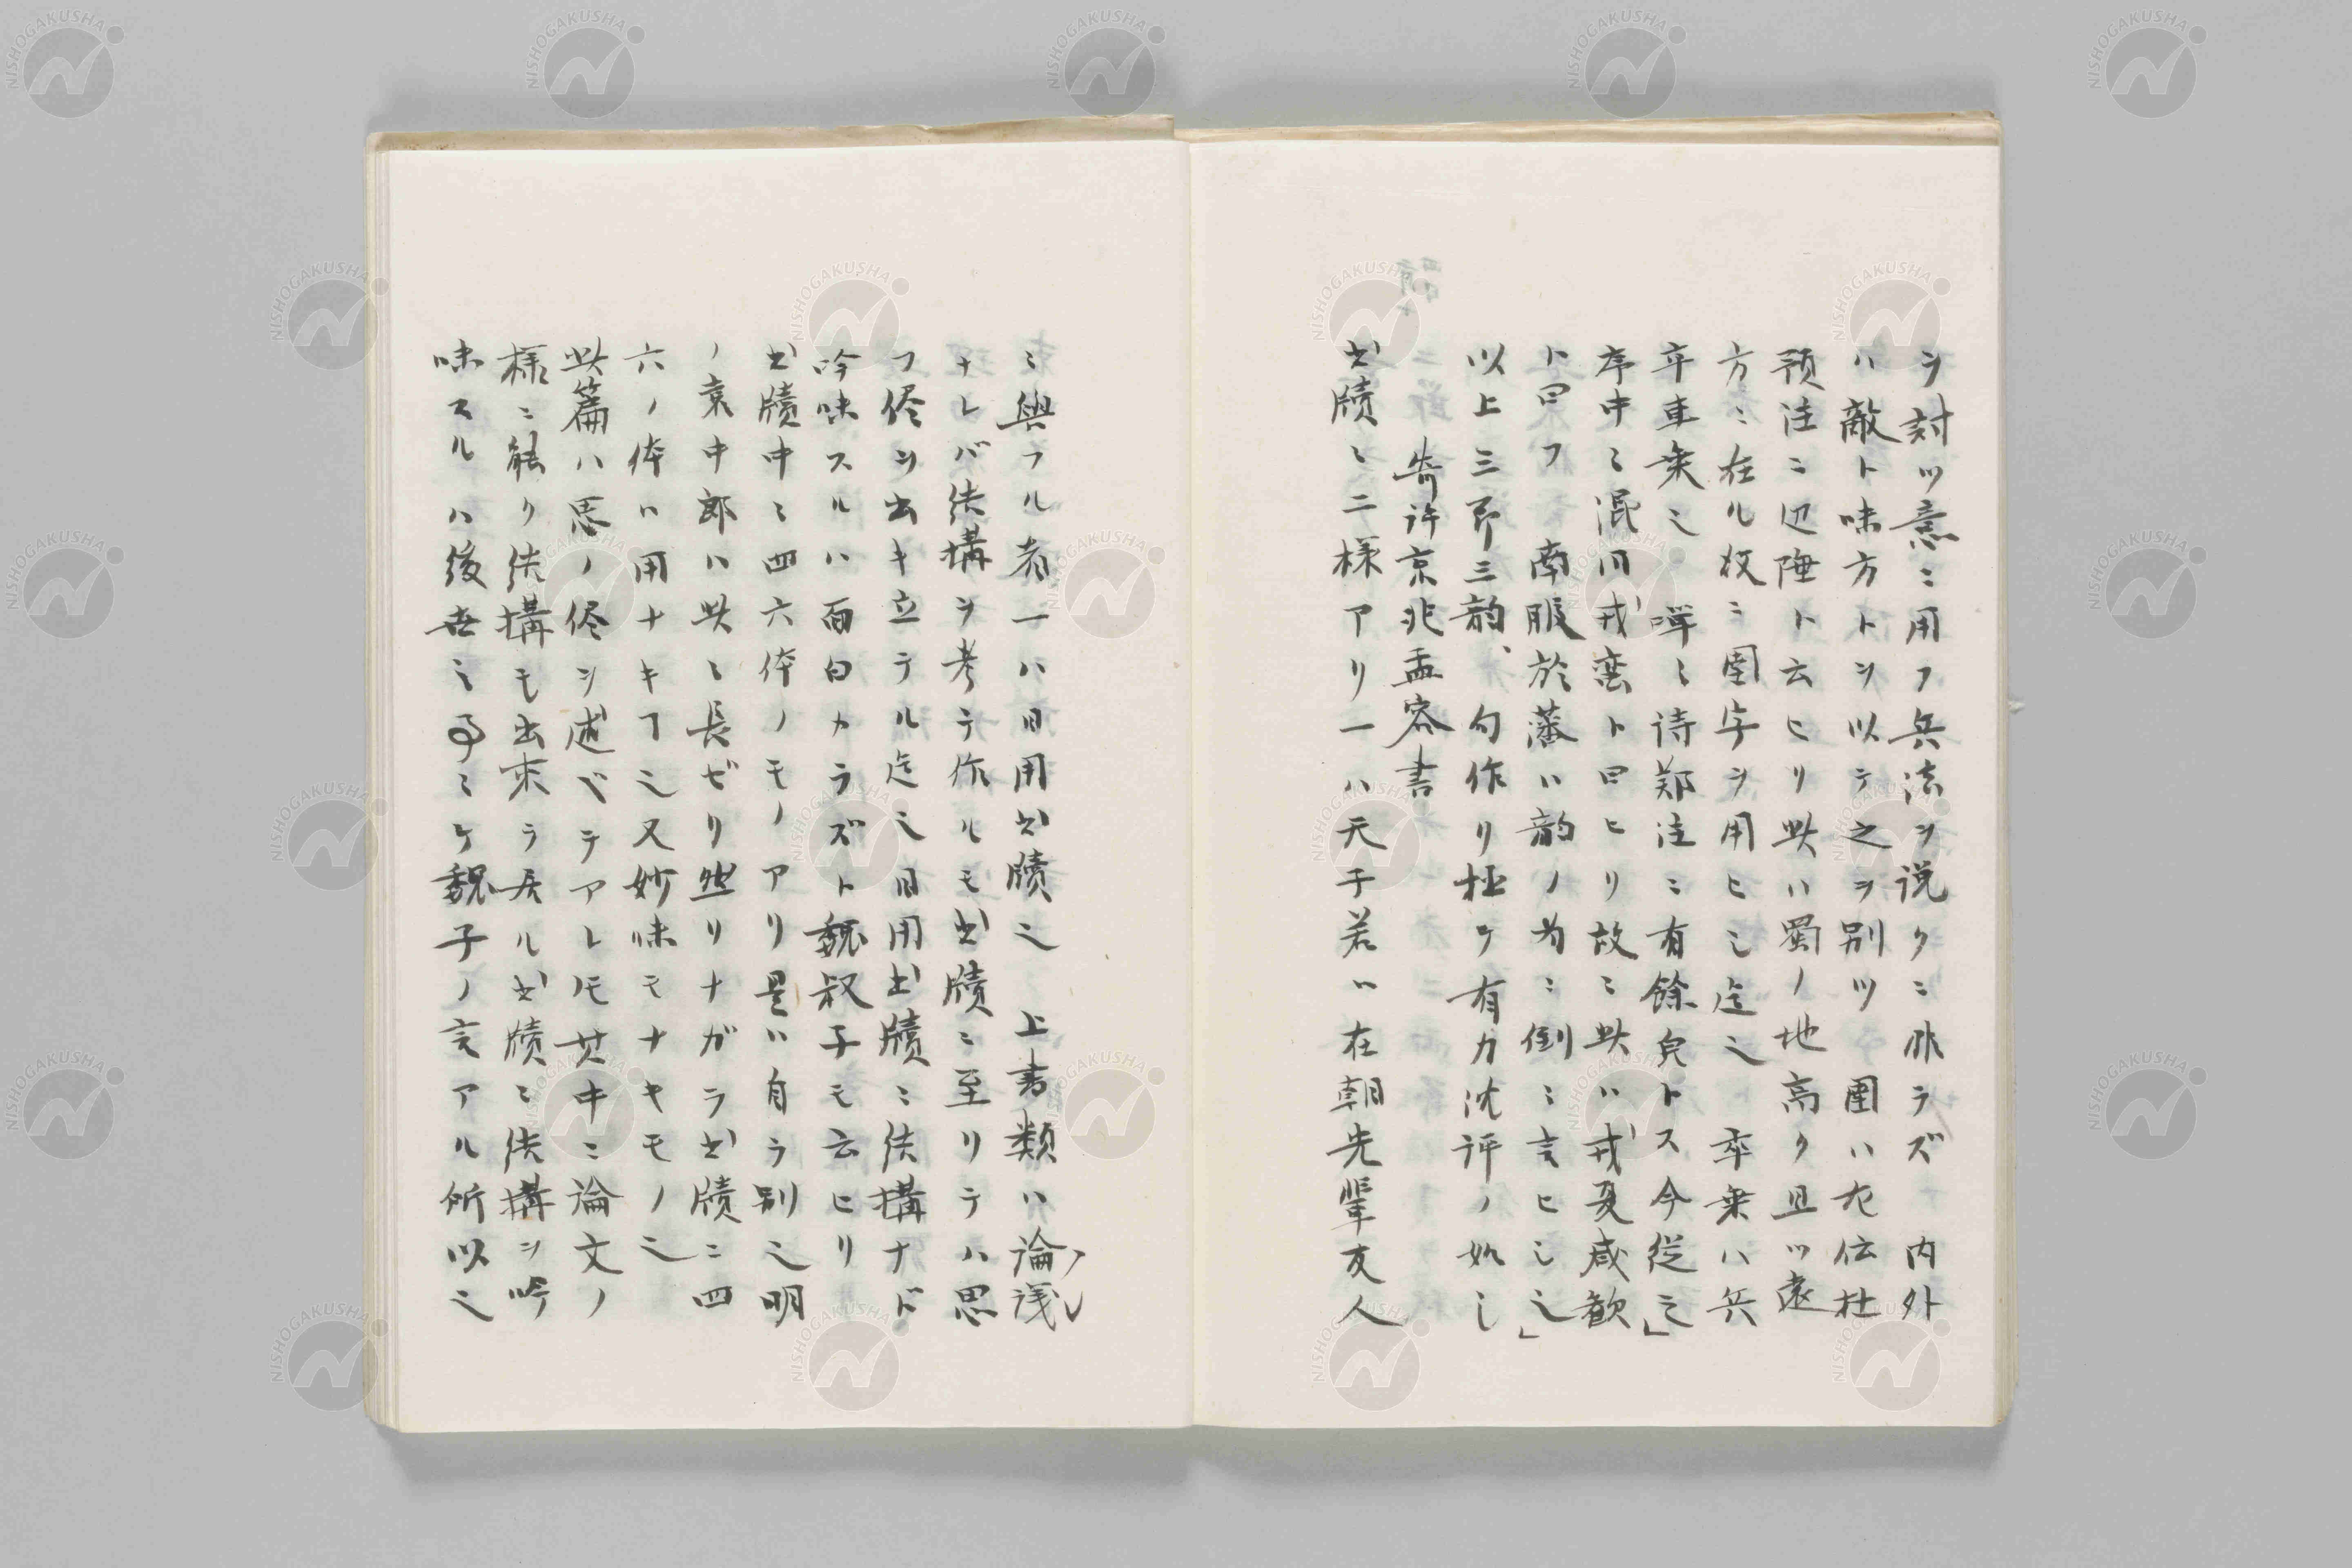 ヲ討ツ意ニ用フ兵法ヲ説クニ非ラズ 内外
ハ敵ト味方トヲ以テ之ヲ別ツ 圉ハ左伝杜
預注ニ辺陲ト云ヒリ此ハ蜀ノ地高ク且ツ遠
方ニ在ル故ニ圉字ヲ用ヒシ迄之 卒乗ハ兵
卒車乗之 嘽ミ詩鄭注ニ有餘皃トス今従之」
序中ニ混同戎蛮ト曰ヒリ故ニ此ハ戎夏咸歓
ト曰フ 南服於藩ハ韵ノ為ニ倒ニ言ヒシ之」
以上三第三韵、句作リ極ケ有力沈評ノ如シ
寄許京兆孟容書
書牘ニ二様アリ一ハ天子若ハ在朝先輩友人
ニ與フル者一ハ日用書牘之 上書類ハ論浅
ナレバ結構ヲ考テ作ルモ書牘ニ至リテハ思
フ侭ヲ出キ立テル迄之日用書牘ニ結構ナド
吟味スルハ面白カラズト魏叔子モ云ヒリ
書牘中ニ四六体ノモノアリ是ハ自ラ別之明
ノ袁中郎ハ此ニ長ゼリ然リナガラ書牘ニ四
六ノ体ハ用ナキヿ之又妙味モナキモノ之
此篇ハ思ノ侭ヲ述ベテアレ𪜈其中ニ論文ノ
様ニ能ク結構モ出来ラ居ル書牘ニ結構ヲ吟
味スルハ後世ニヿミケ魏子ノ言アル所以之
NISHOGAKUSHA